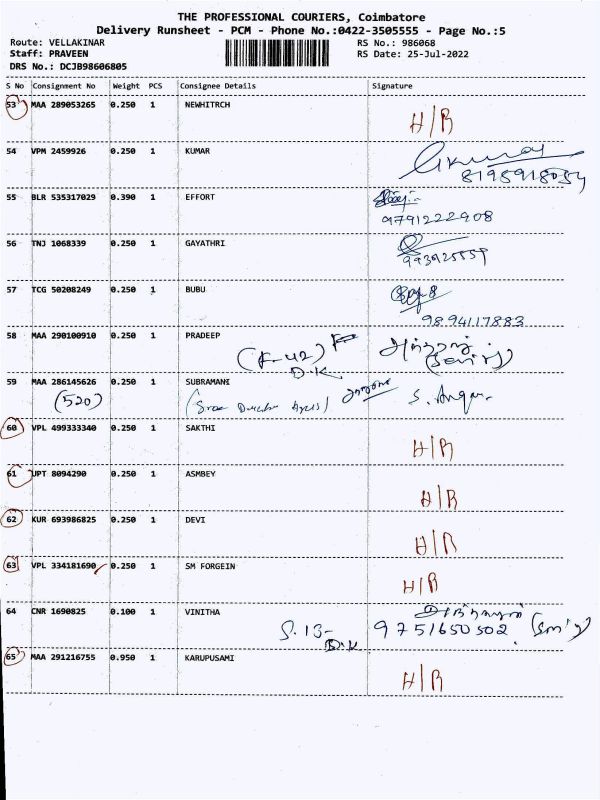 THE PROFESSIONAL COURIERS, Coimbatore
Delivery Runsheet - PCM - Phone No.:0422-3505555 - Page No.:5
Route: VELLAKINAR RS No.: 986068
Staff: PRAVEEN RS Date: 25-Jul-2022
DRS No.: DCJB98606805
S No Consignment No Weight PCS Consignee Details Signature
53 MAA 289053265 0.250 1 NEWHITRCH
H/R
54 VPM 2459926 0.250 1 KUMAR
8195918054
55 BLR 535317029 0.390 1 EFFORT
9791222908
56 TNJ 1068339 0.250 1 GAYATHRI
993925559
57 TCG 50208249 0.250 1 BUBU
9894117883
58 MAA 290100910 0.250 1 PRADEEP
(F-42)
D.K
59 MAA 286145626 0.250 1 SUBRAMANI
(520)
60 VPL 499333340 0.250 1 SAKTHI
H/R
61 UPT 8094290 0.250 1 ASMBEY
H/R
62 KUR 693986825 0.250 1 DEVI
H/R
63 VPL 334181690 0.250 1 SM FORGEIN
H/R
64 CNR 1690825 0.100 1 VINITHA
S. 13- 9751650502
D.K
65 MAA 291216755 0.950 1 KARUPUSAMI
H/R